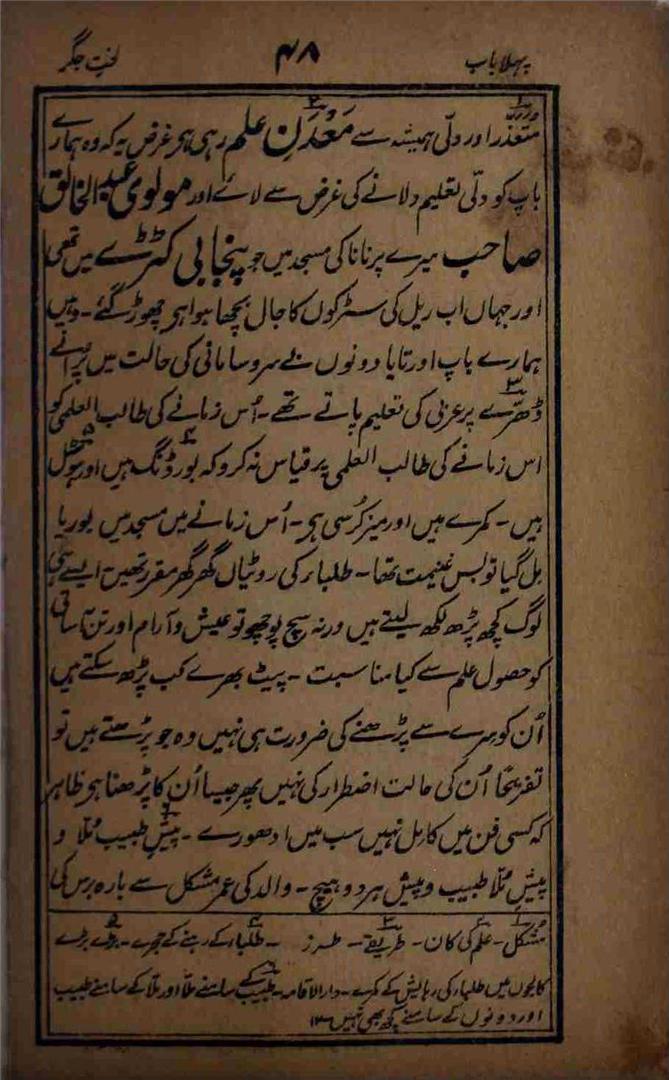 پہلا باب ۴۸ لختِ جگر
متعذّر اور دلّی ہمیشہ سے مَعْدَنِ علم رہی ہی غرض یہ کہ وہ ہمارے
باپ کو دلّی تعلیم دلانے کی غرض سے لائے اور مولوی عبدالخالق
صاحب میرے پرنانا کی مسجد میں جو پنجابی کٹڑے میں تھی
اور جہاں اب ریل کی سڑکوں کا جال بچھا ہوا ہی چھوڑ گئے۔ وہیں
ہمارے باپ اور تایا دونوں بے سرو سامانی کی حالت میں پرانے
ڈھرّے پر عربی کی تعلیم پاتے تھے۔ اُس زمانے کی طالب العلمی کو
اس زمانے کی طالب العلمی پر قیاس نہ کرو کہ بورڈنگ ہیں اور ہوسٹل
ہیں۔ کمرے ہیں اور میز کُرسی ہی۔ اُس زمانے میں مسجد میں بوریا
مل گیا تو بس غنیمت تھا۔ طلباء کی روٹیاں گھر گھر مقرر تھیں ایسے ہی
لوگ کچھ پڑھ لکھ لیتے ہیں ورنہ سچ پوچھو تو عیش و آرام اور تن آسانی
کو حصول علم سے کیا مناسبت۔ پیٹ بھرے کب پڑھ سکتے ہیں
اُن کو سرے سے پڑھنے کی ضرورت ہی نہیں وہ جو پڑھتے ہیں تو
تفریحًا اُن کی حالت اضطرار کی نہیں پھر جیسا اُن کا پڑھنا ہی ظاہر
کہ کسی فن میں کامِل نہیں سب میں ادھورے۔ پیشِ طبیب مُلّا و
پیشِ مُلّا طبیب و پیش ہر دو ہیچ۔ والد کی عمر مشکل سے بارہ برس کی
۱؎ مشکل۔ ۲؎ علم کی کان۔ ۳؎ طریقے۔ طرز۔ ۴؎ طلباء کے رہنے کے حجرے۔ ۵؎ بڑے بڑے
کالجوں میں طلباء کی رہایش کے کمرے۔ دارالاقامہ۔ ۶؎ طبیب کے سامنے ملّا اور ملّا کے سامنے طبیب
اور دونوں کے سامنے کچھ بھی نہیں ۱۲